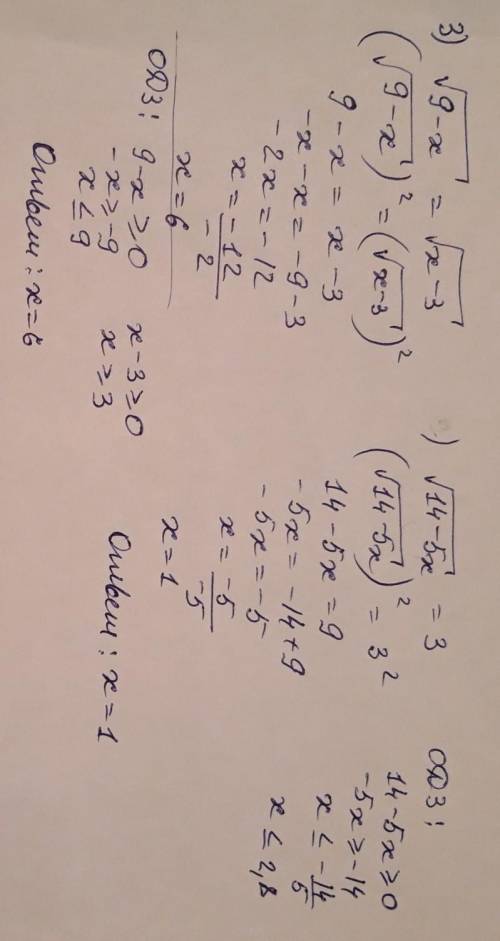 3) √9-x = √x-3
(√9-x)² = (√x-3)²
9-x = x-3
-x-x = -9-3
-2x = -12
x = -12/-2
x = 6
ОДЗ: 9-x ≥ 0
-x ≥ -9
x ≤ 9
x-3 ≥ 0
x ≥ 3
Ответ: x = 6
) √14-5x = 3
(√14-5x)² = 3²
14-5x = 9
-5x = -14+9
-5x = -5
x = -5/-5
x = 1
Ответ: x = 1
ОДЗ:
14-5x ≥ 0
-5x ≥ -14
x ≤ -14/5
x ≤ 2,8